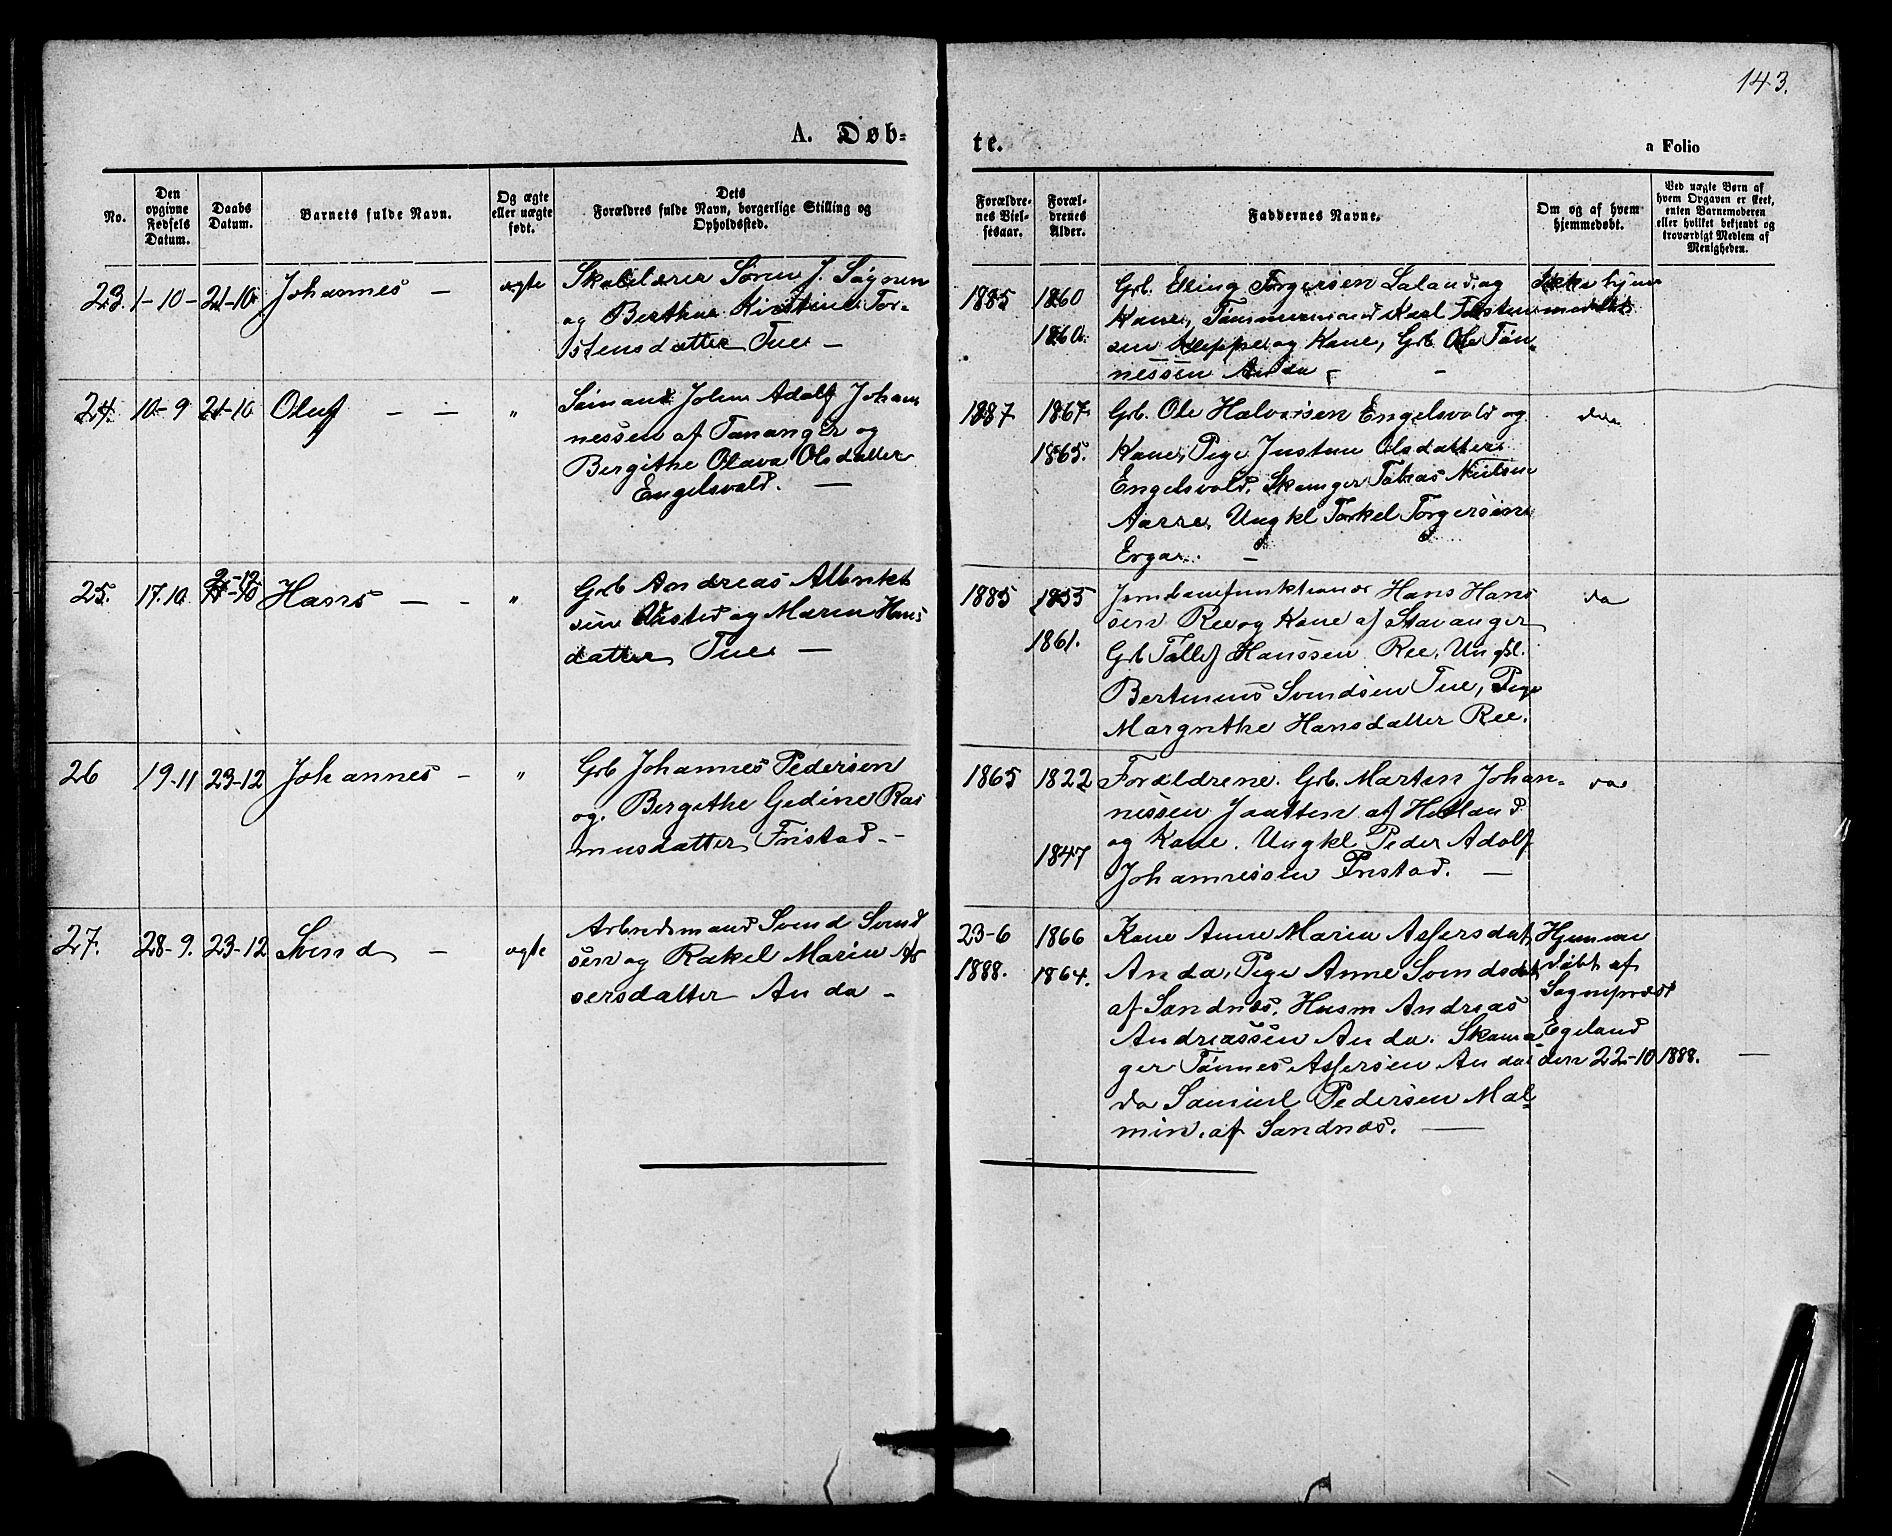 143.
A. Døb-
te.
a Folio
No.
Den
opgivne
Fødsels
Datum.
Daabs
Datum.
Barnets fulde Navn.
Og ægte
eller uægte
født.
Dets
Forældres fulde Navn, borgerlige Stilling og
Opholdssted.
Forældre-
nes Viel-
sesaar.
Foræl-
drenes
Alder.
Faddernes Navne.
Om og af hvem
hjemmedøbt.
Ved uægte Børn af
hvem Opgaven er skeet,
enten Barnemoderen
eller hvilket bekjendt og
troværdigt Medlem af
Menigheden.
23. 1-10- 21-10 Johannes — ægte
Skolelærer Sören J.
og Berthe Kirstine Tor-
stensdatter Tue —
1885 1860
1860.
Grb. Elling Torgersen og
Kone, Tømmermand Karl
sen Kleppe og Kone, Grb. Ole Tøn-
nessen Anda —
Ikke hjem-
24. 10-9 21-10 Oluf — — "
Sømand John Adolf Johan
nessen af Tananger og
Bergithe Olava Olsdatter
Engelsvold. —
1887 1867
1865.
Grb. Ole Halvorsen Engelsvold og
Kone, Pige Justine Olsdatter
Engelsvold, Skomger Tobias Nielsen
Aarre, Ungkl Torkel Torgersen
Ergar. —
25. 17.10 Hans — - "
Grb Andreas
sen og Maren Hans
datter Tue —
1885 1855
1861.
Hans Hans
sen Ree og Kone af Stavanger
Grb Tollef Hanssen Ree, Ungkl.
Svendsen Tue, Pige
Margrethe Hansdatter Ree.
da
26 19-11 23-12 Johannes - "
Grb Johannes Pedersen
og Bergithe Gedine Ras
musdatter Fristad -
1865 1822
1847
Forældrene. Grb. Marten Johan-
nessen Jaatten af Hetland
og Kone. Ungkl Peder Adolf
Johannessen Fristad. —
da
27. 28-9. 23-12 Svend — ægte
Arbeidsmand Svend Svend
sen og Rakel Marie As
sersdatter Anda -
23-6 1888. 1866
1864.
Kone Anne Marie Assersdat
Anda, Pige Anne Svendsdat
af Sandnæs. Husm Andreas
Andreassen Anda. Skoma
ger Tønnes Assersen Anda
do Samuel Pedersen Mal-
min. af Sandnæs. —
Hjemme
døbt af
Sognepræst
Egeland
den 22-10 1888. —